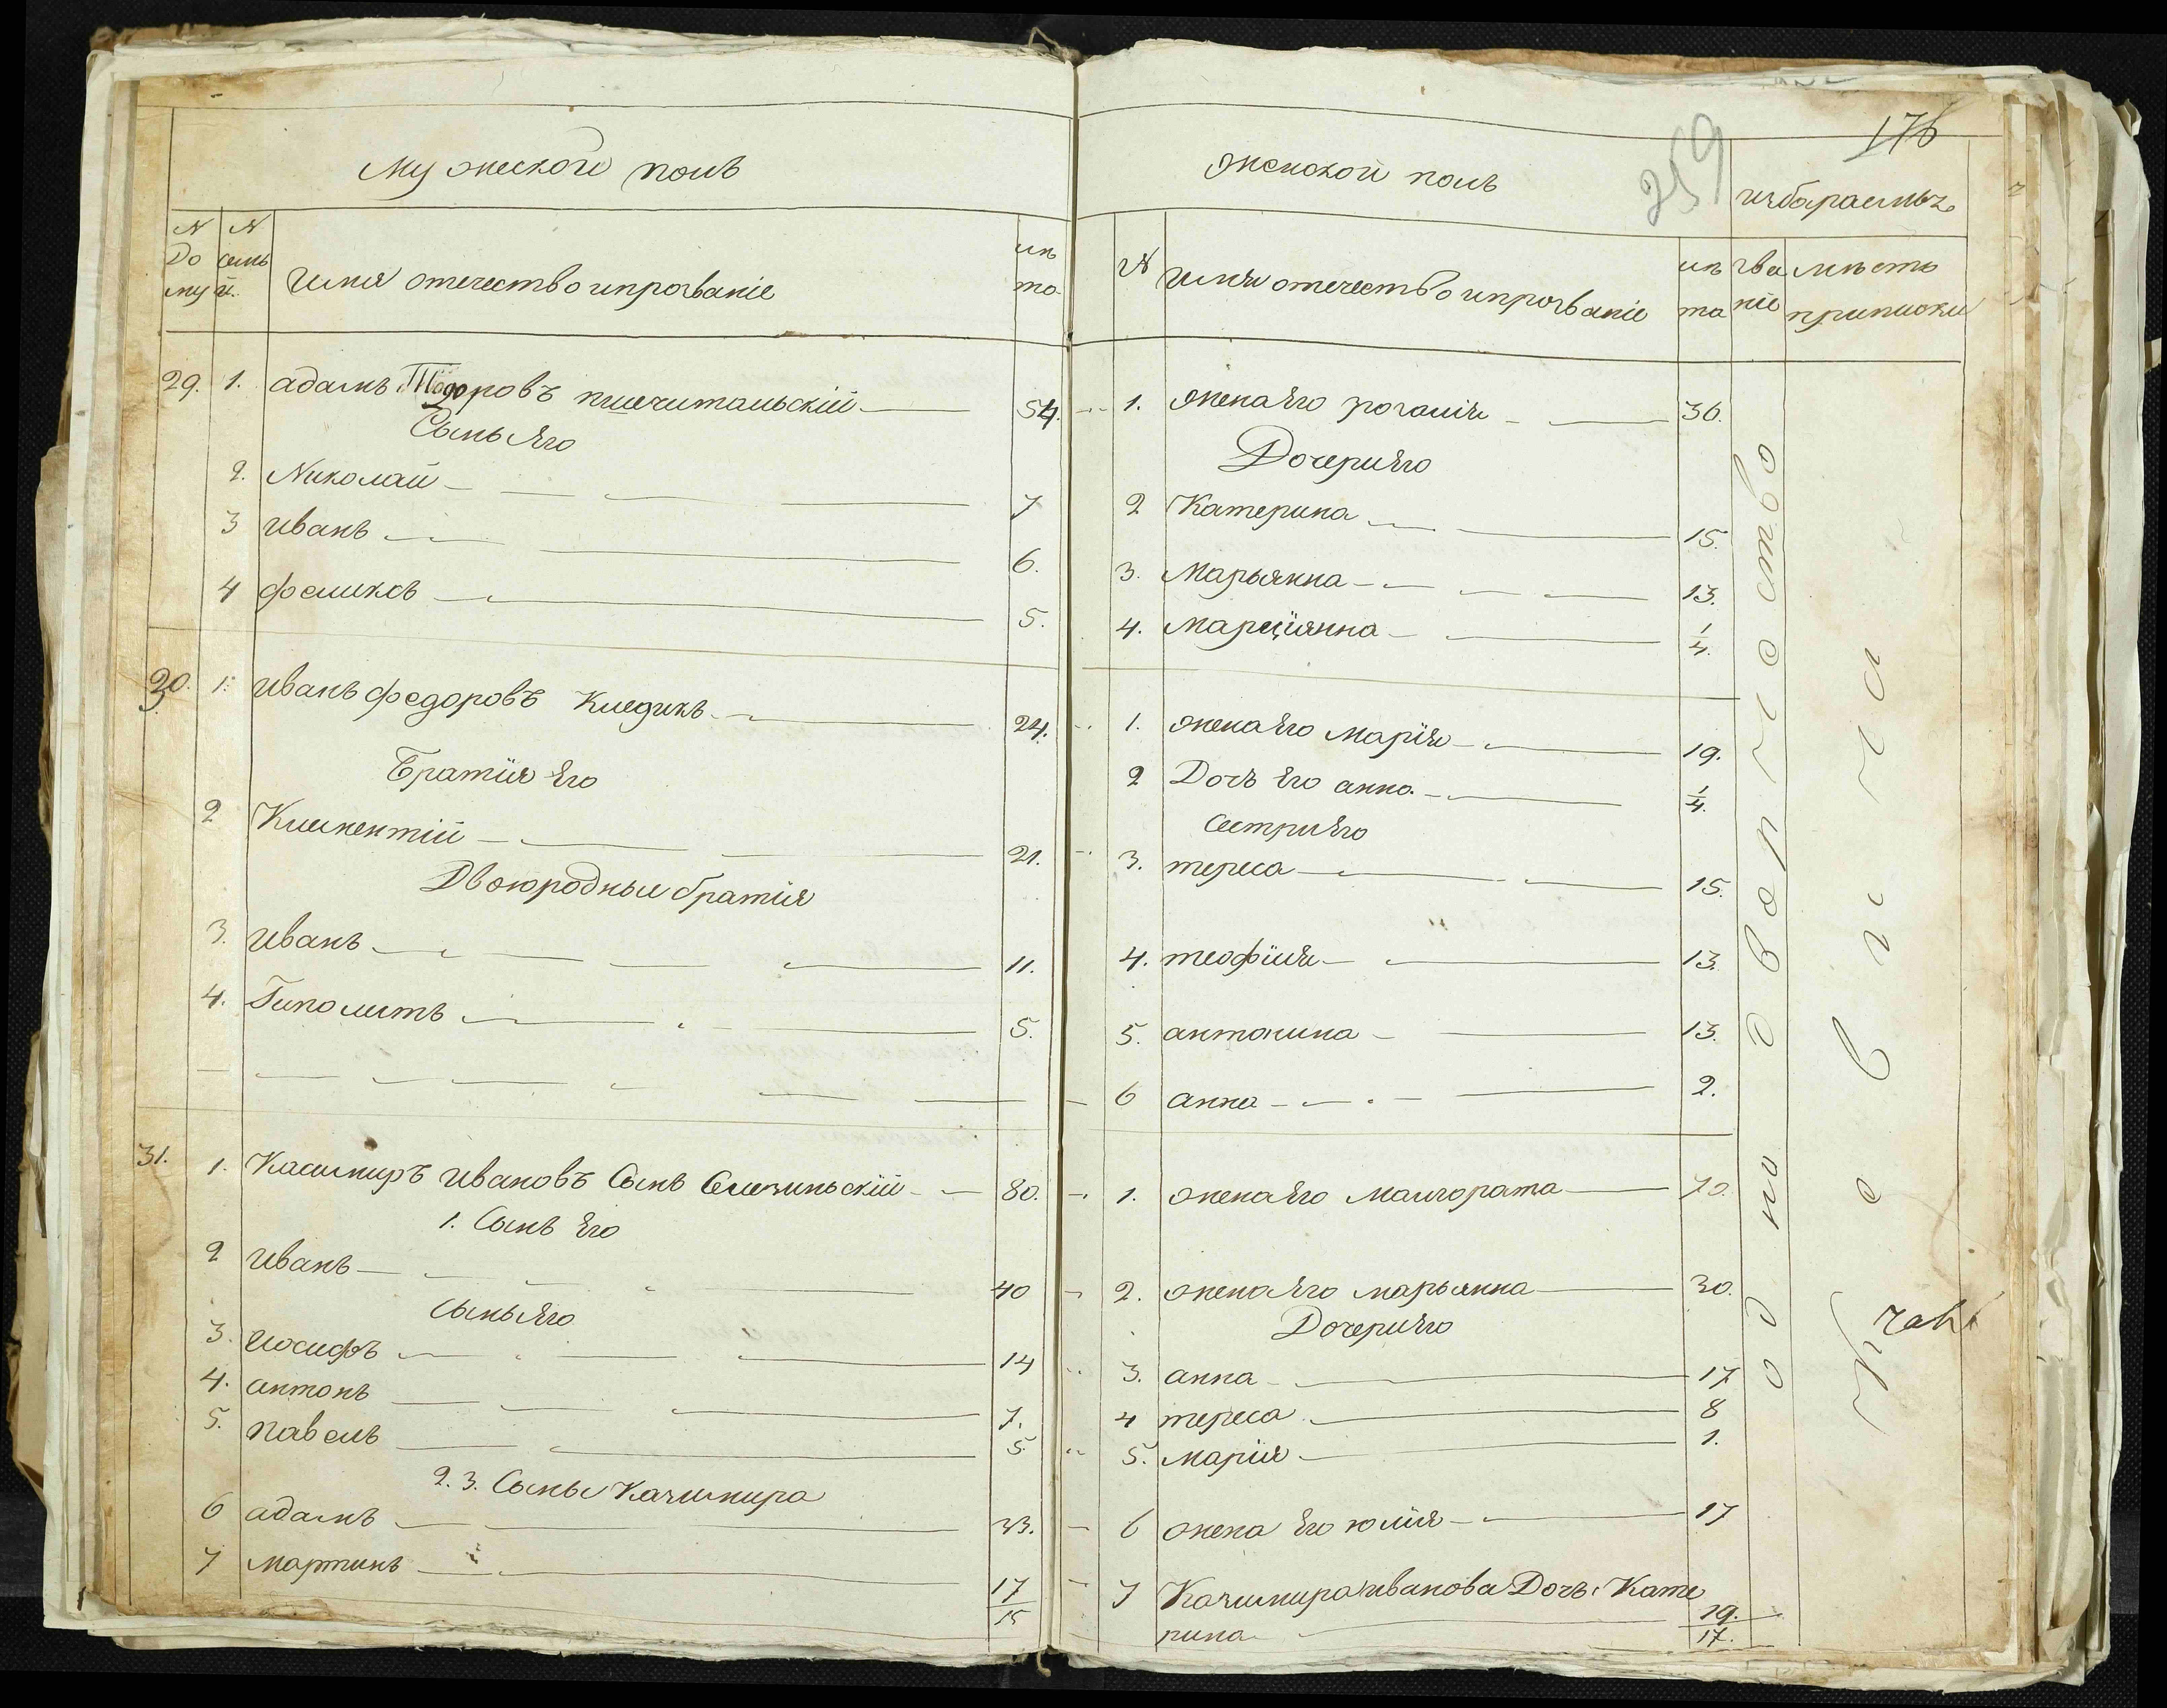 Мужеской полъ
N Дому
N семьи.
Имя отечество ипрозваніе
лѣта
29. 1. адамъ Тодоровъ 54.
Сынья Его
2. Николай 7
3 Иванъ 6.
4 феликсъ 5.
30. 1. Иванъ федоровъ Кледикъ 24.
Братія Его
2 Климентій 21.
Двоюродные братія
3. Иванъ 11.
4. Гиполитъ 5.
31. 1. Касимиръ Ивановъ Сынъ 80.
1. Сынъ Его
2 Иванъ 40
Сынья Его
3. Иосифъ 14
4. антонъ 7.
5. Павелъ 5.
2. 3. Сыны Казимира
6 адамъ 33.
7 мартинъ 17
15
259
176
женской полъ
N
Имя отечество ипрозваніе
лѣта
званіе
мѣсто приписки
1. жена Его розалія 36.
Дочери Его
2 Катерина 15.
3. Марьянна 13.
4. марціянна 1/4.
1. жена Его марія 19.
2 Дочъ Его анна 1/4.
Сестри Его
3. тереса 15.
4. теофиля 13.
5. антонина 13.
6 анна 2.
1. жена Его малгората 70.
2. жена Его марьянна 30.
Дочери Его
3. анна 17
4 тереса 8
5. марія 1.
6 жена Его юлія 17
7 Казимира иванова Дочъ Кате
рина 19.
17.
однодворчество